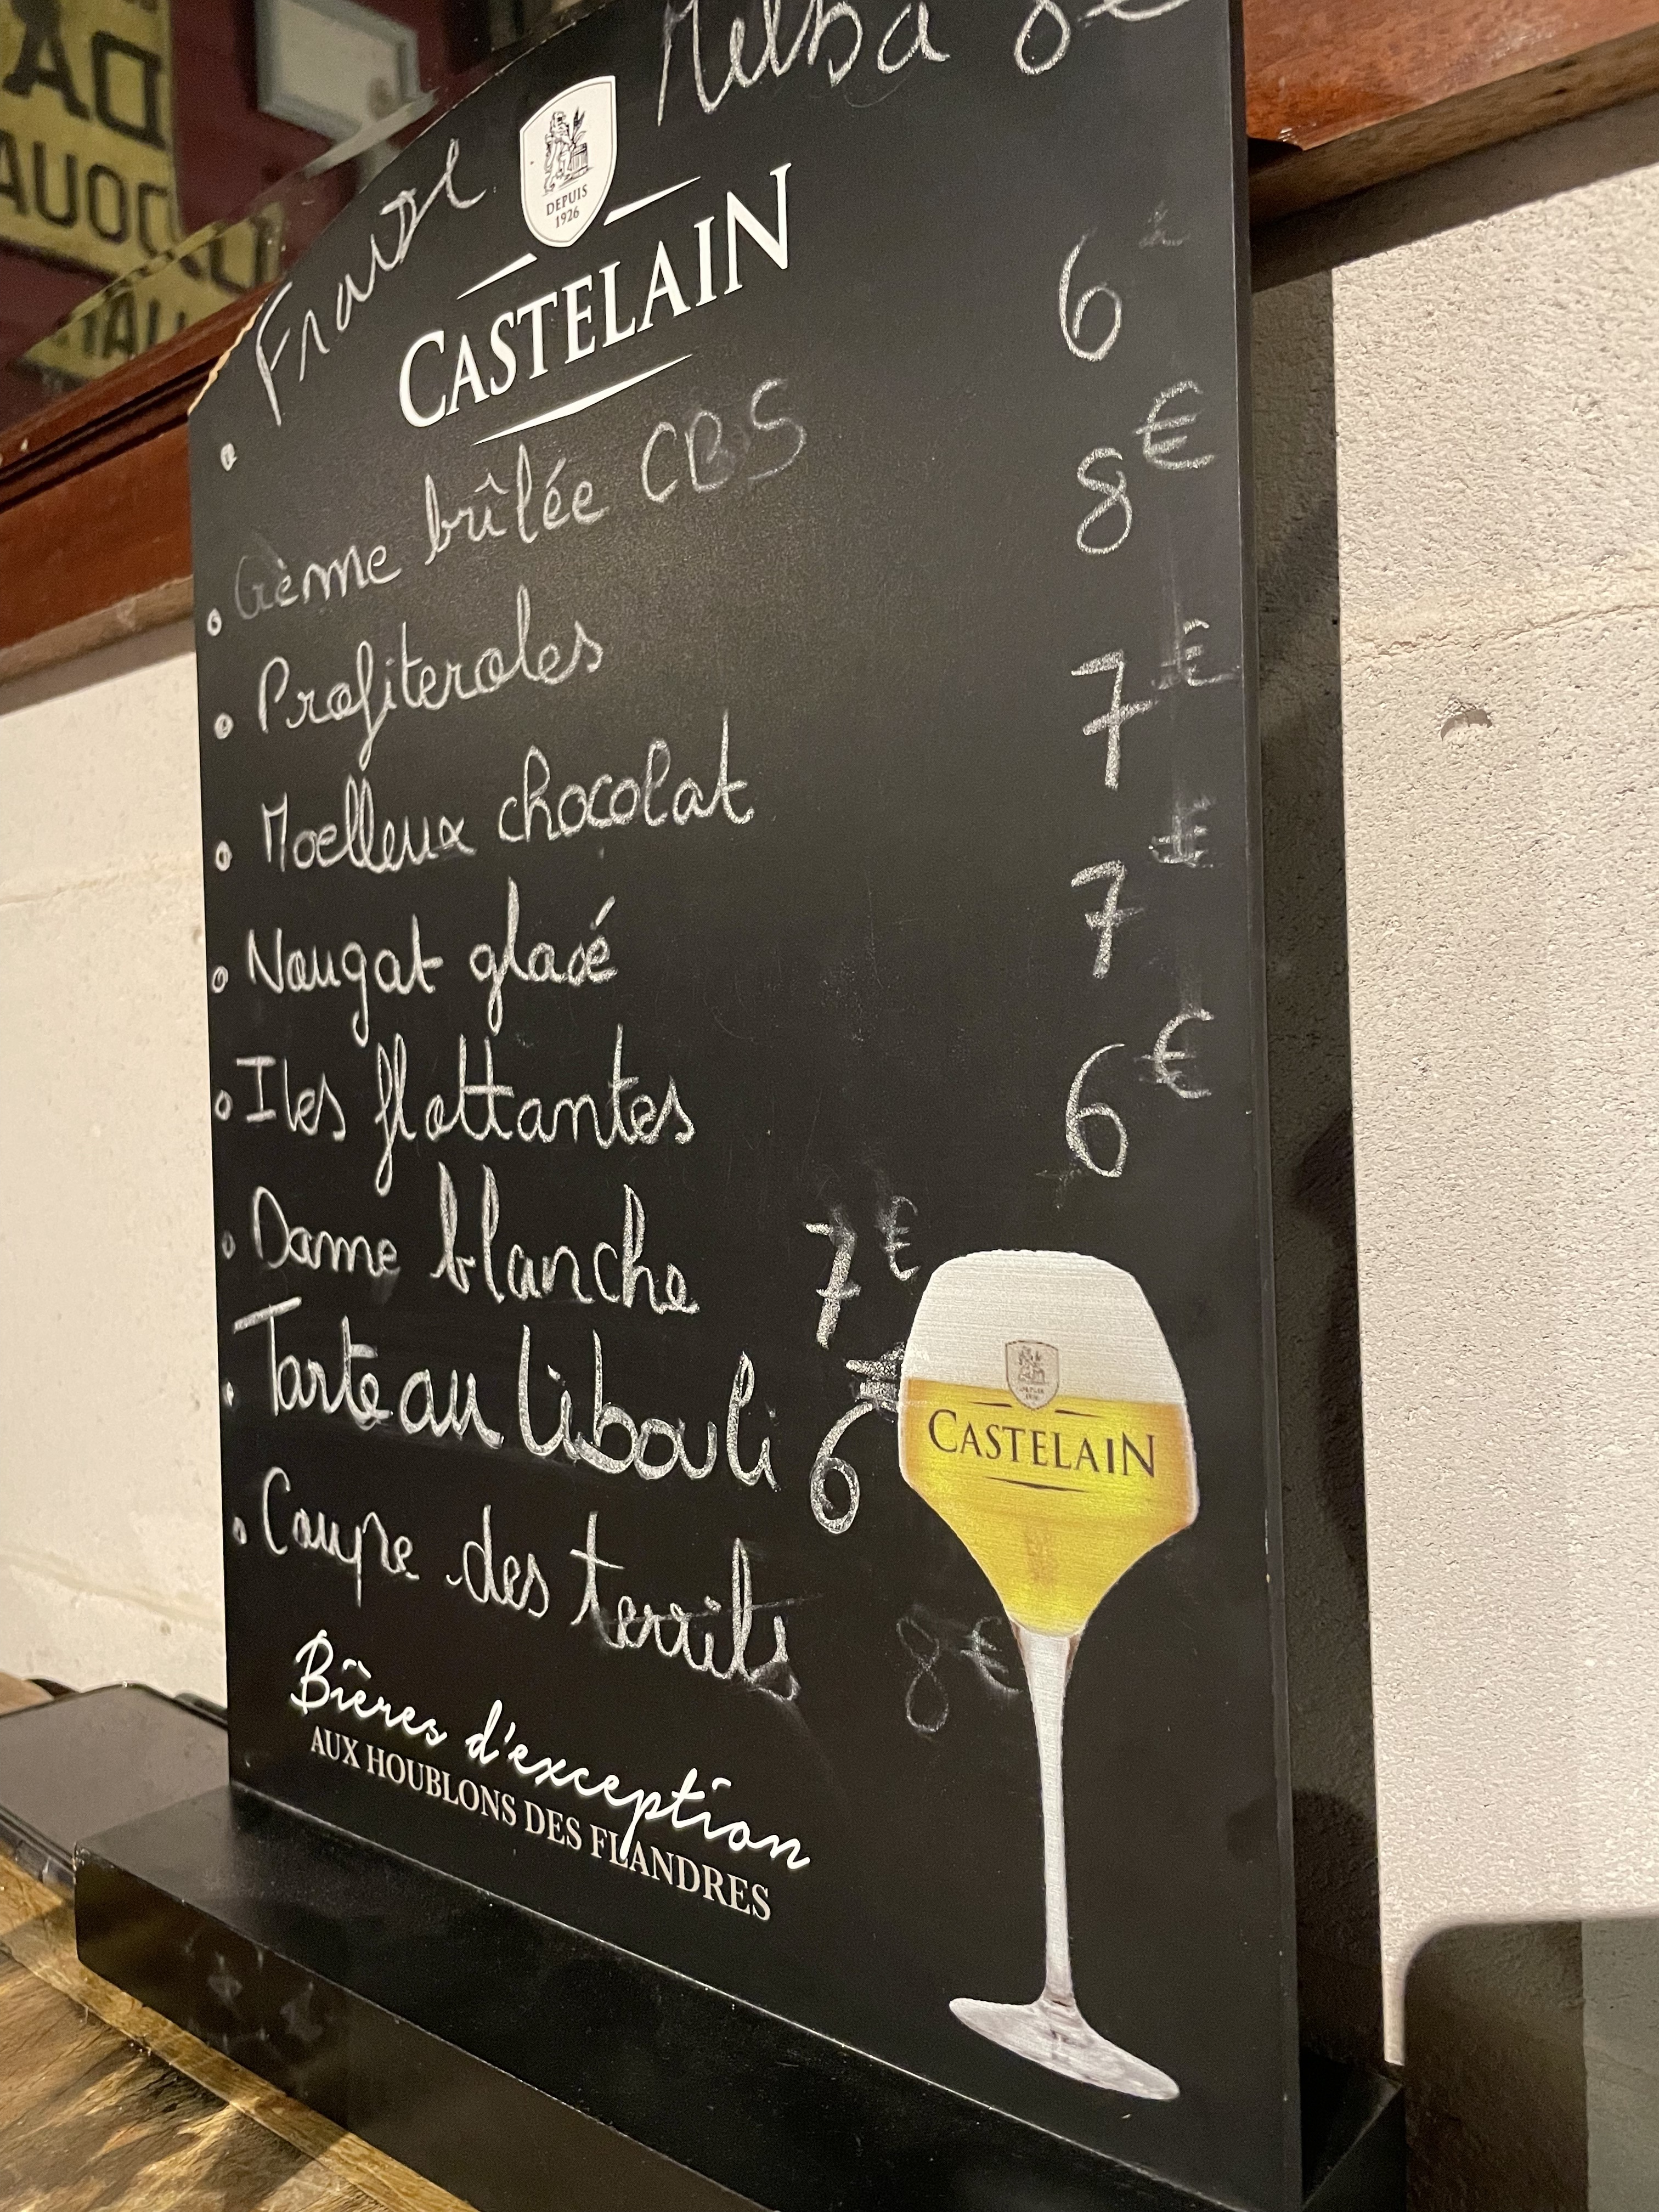 Fraise Melba 8€
DEPUIS
1926
CASTELAIN
Crème brûlée CBS 6€
Profiteroles 8€
Moelleux chocolat 7€
Nougat glacé 7€
Iles flottantes 6€
Dame blanche 7€
Tarte au libouli 6€
Coupe des terrils 8€
CASTELAIN
Bières d'exception
AUX HOUBLONS DES FLANDRES